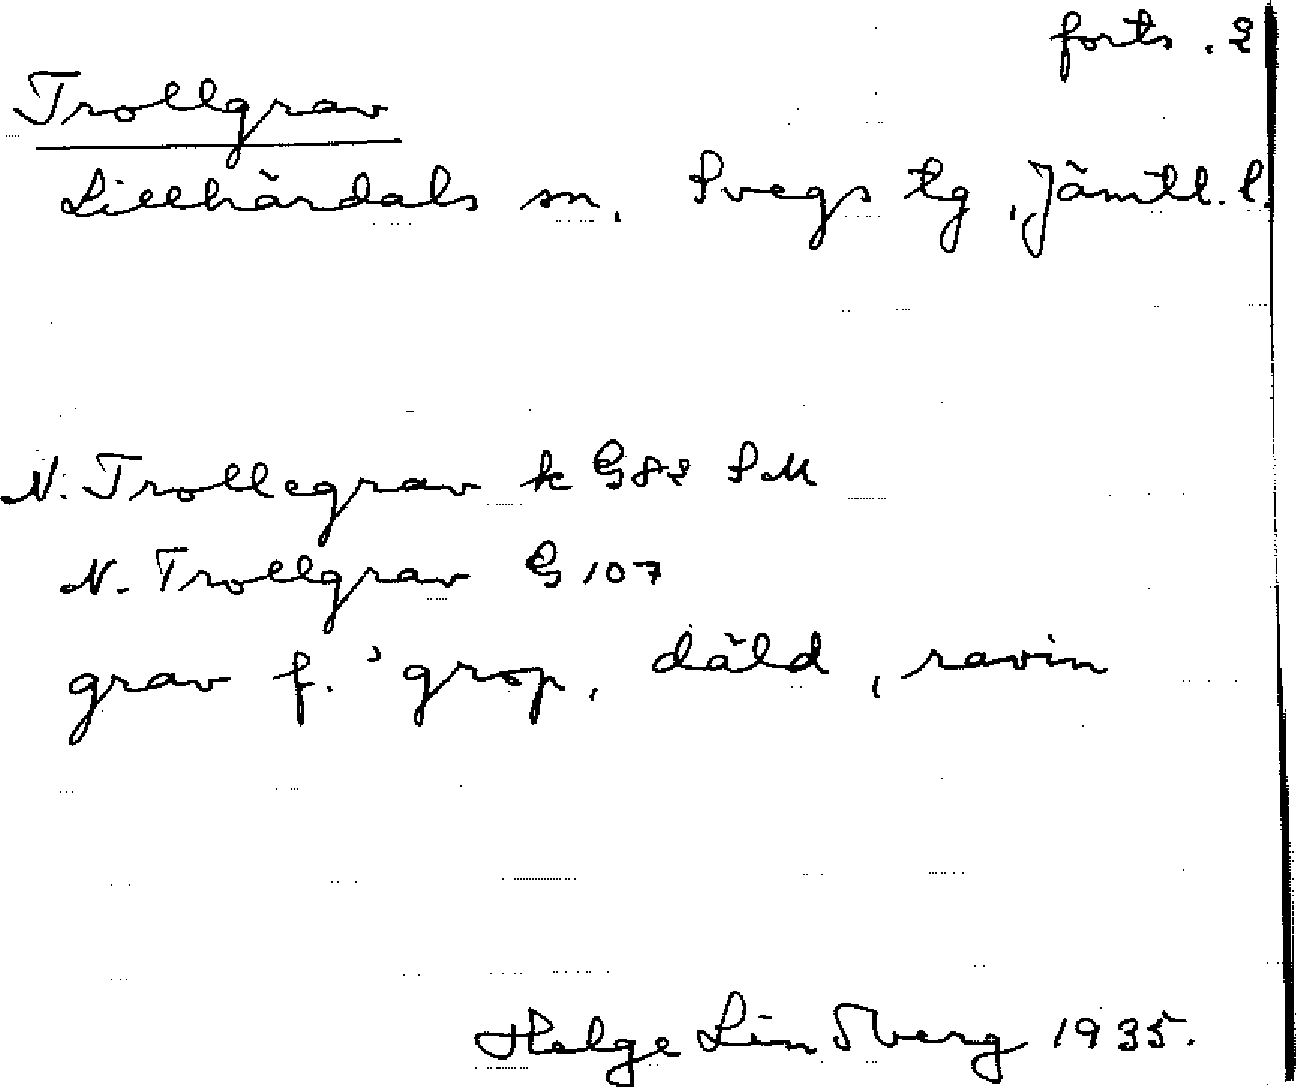 forts. 2
Trollgrav
Lillhärdals sn, Svegs tg, Jämtl. l.
N. Trollegrav k G82 SM
N. Trollgrav G 107
grav f. 'grop, däld, ravin
Helge Lindberg 1935.